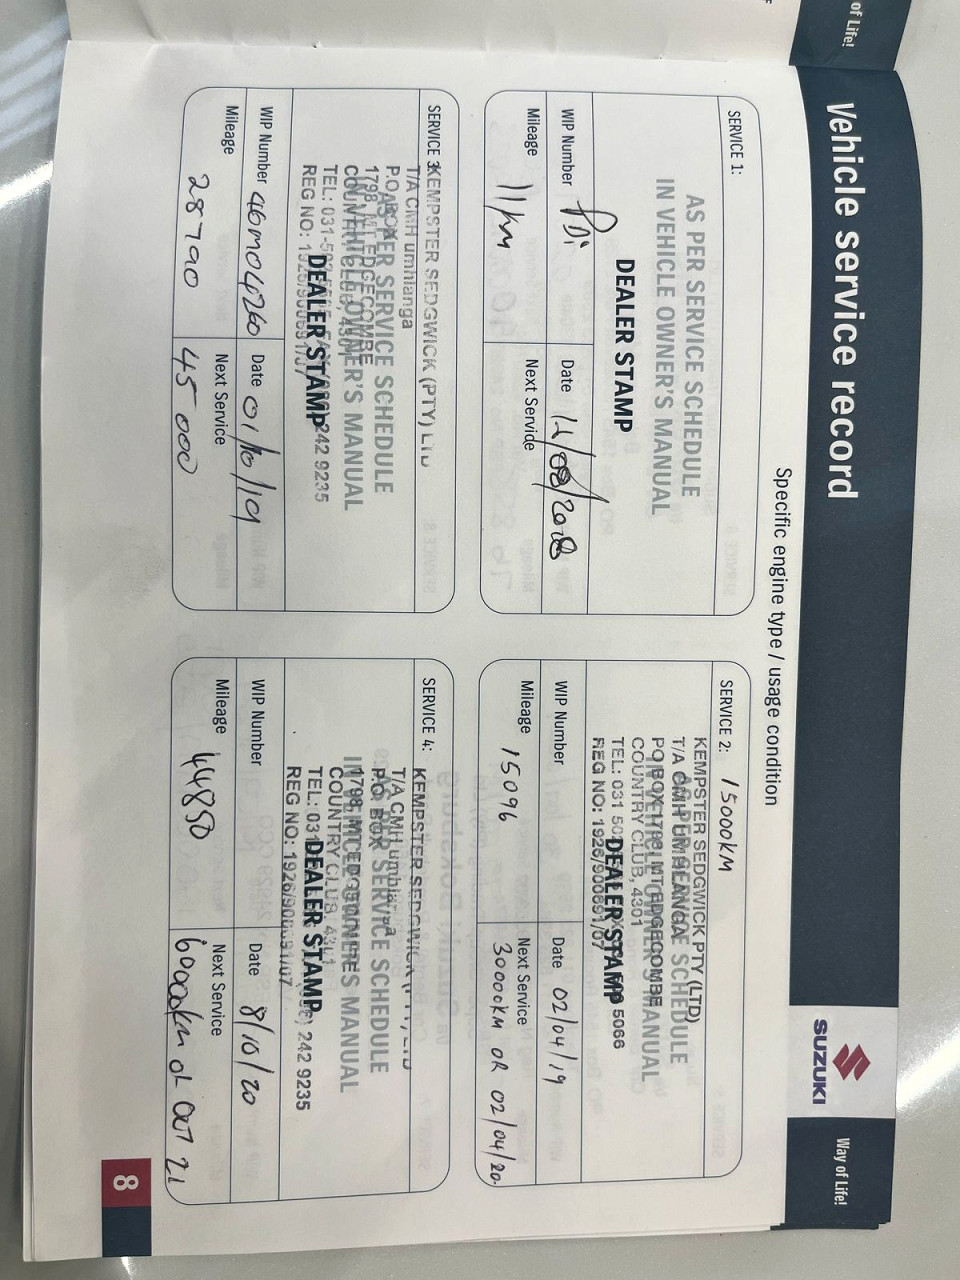 of Life!
Vehicle service record
SUZUKI
Way of Life!
Specific engine type / usage condition
SERVICE 1:
AS PER SERVICE SCHEDULE
IN VEHICLE OWNER'S MANUAL
DEALER STAMP
WIP Number PDi
Date 14/08/2018
Mileage 11km
Next Service
SERVICE 2: 15000KM
KEMPSTER SEDGWICK PTY (LTD)
T/A CMH UMHLANGA
PO BOX 1798, MT EDGECOMBE
COUNTRY CLUB, 4301
DEALER STAMP
REG NO: 1926/900691/07
WIP Number
Date 02/04/19
Mileage 15096
Next Service
30000KM OR 02/04/20
SERVICE 3:
KEMPSTER SEDGWICK (PTY) LTD
T/A CMH umhlanga
P.O BOX
1798 MT EDGECOMBE
COUNTRY CLUB, 4301
AS PER SERVICE SCHEDULE
IN VEHICLE OWNER'S MANUAL
242 9235
DEALER STAMP
REG NO: 1926/900691/07
WIP Number 46M04260
Date 01/10/19
Mileage
28790
Next Service
45 000
SERVICE 4:
KEMPSTER SEDGWICK (PTY) LTD
T/A CMH umhlanga
P.O BOX
1798 MT EDGECOMBE
COUNTRY CLUB, 4301
AS PER SERVICE SCHEDULE
IN VEHICLE OWNER'S MANUAL
242 9235
DEALER STAMP
REG NO: 1926/900691/07
WIP Number
Date 8/10/20
Mileage 44850
Next Service
60000km or OCT 21
8